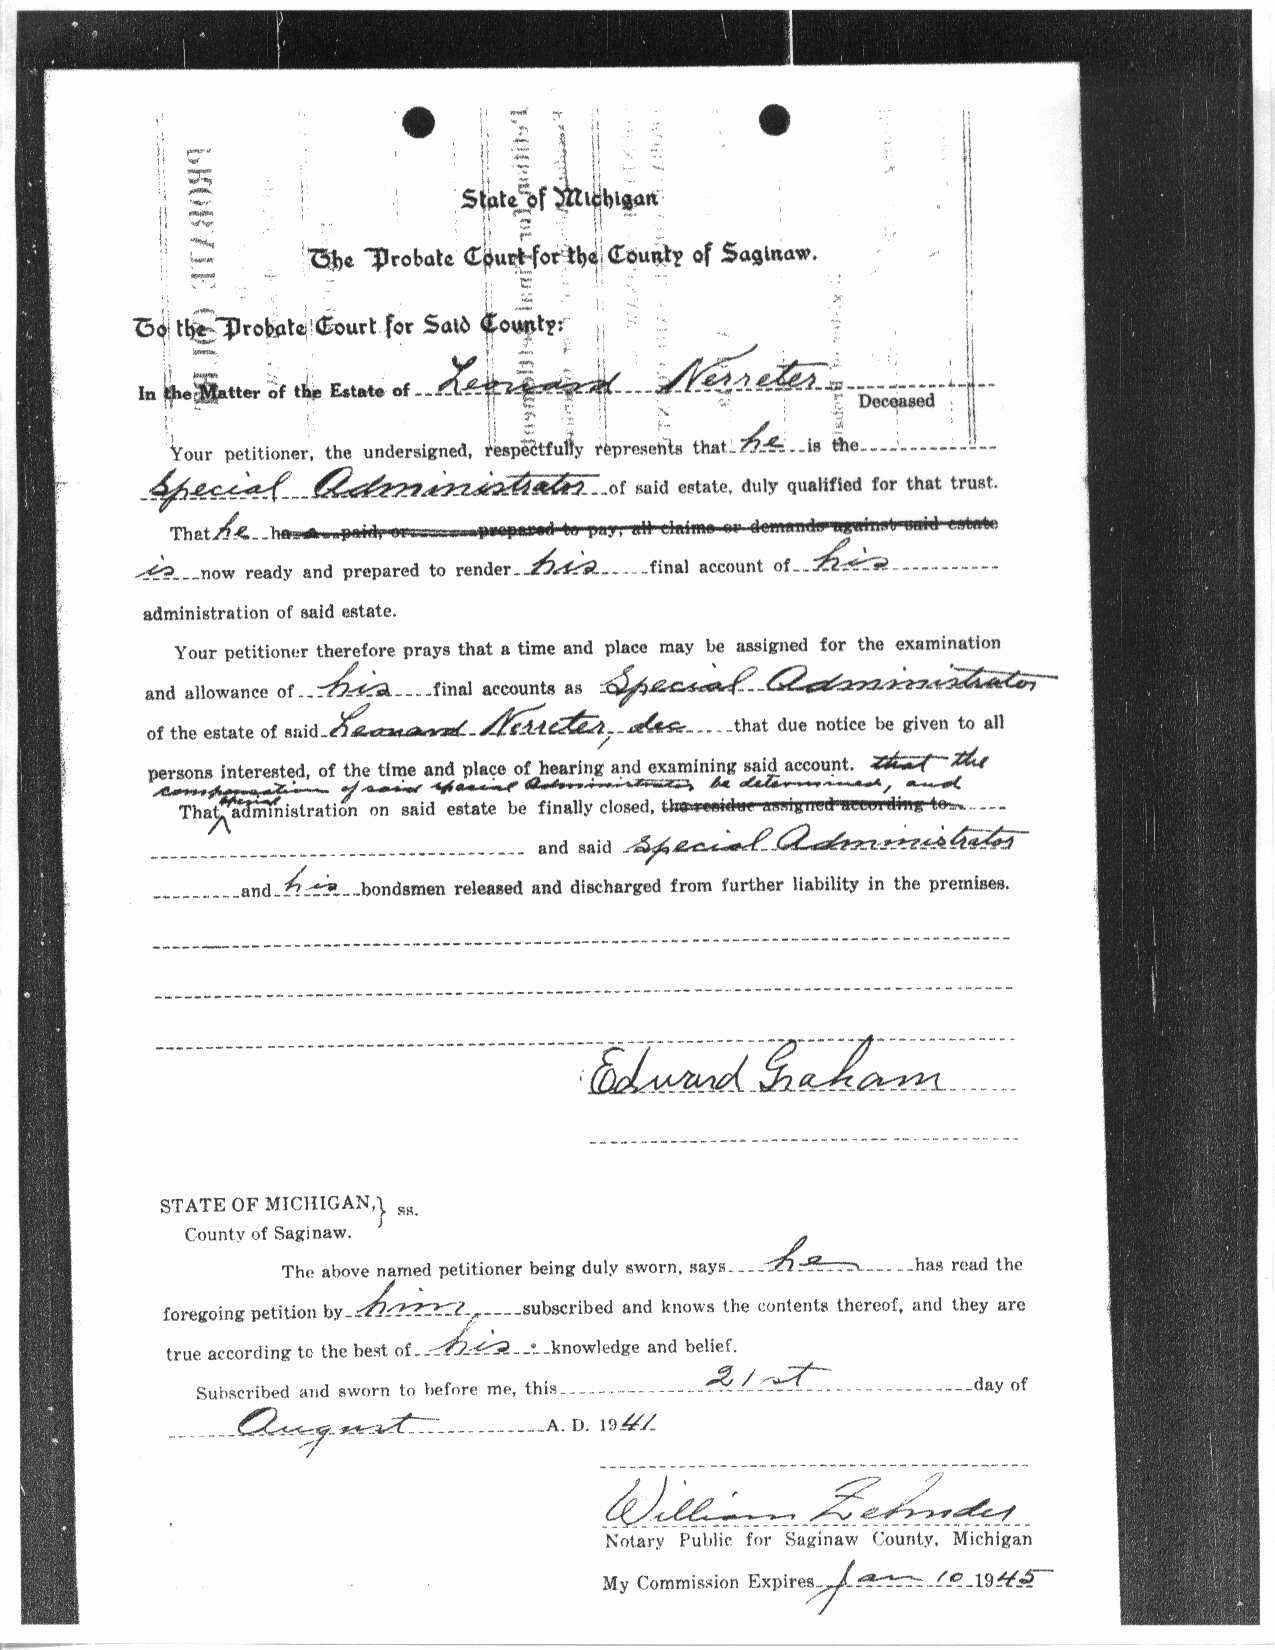 State of Michigan
The Probate Court for the County of Saginaw.
To the Probate Court for Said County:
In the Matter of the Estate of Leonard Nerreter
Deceased
Your petitioner, the undersigned, respectfully represents that he is the
Special Administrator of said estate, duly qualified for that trust.
That he has paid, or prepared to pay, all claims or demands against said estate
is now ready and prepared to render his final account of his
administration of said estate.
Your petitioner therefore prays that a time and place may be assigned for the examination
and allowance of his final accounts as Special Administrator
of the estate of said Leonard Nerreter, dec that due notice be given to all
persons interested, of the time and place of hearing and examining said account. that the
compensation of said special Administrator be determined, and
That special administration on said estate be finally closed, the residue assigned according to
and said Special Administrator
and his bondsmen released and discharged from further liability in the premises.
Edward Graham
STATE OF MICHIGAN, } ss.
County of Saginaw.
The above named petitioner being duly sworn, says he has read the
foregoing petition by him, subscribed and knows the contents thereof, and they are
true according to the best of his knowledge and belief.
Subscribed and sworn to before me, this 21st day of
August A. D. 1941
William Zehnder
Notary Public for Saginaw County, Michigan
My Commission Expires Jan 10 1945